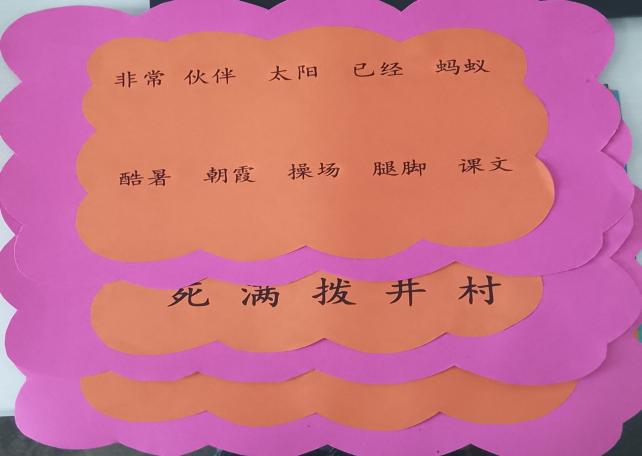 非常 伙伴 太阳 已经 蚂蚁
酷暑 朝霞 操场 腿脚 课文
死 满 拨 井 村